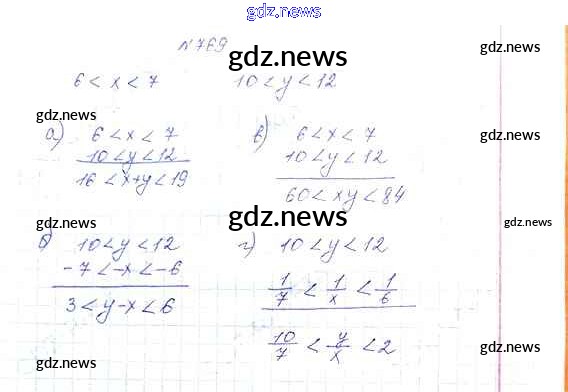 gdz.news
N769
gdz.news
gdz.news
6 < x < 7
10 < y < 12
gdz.news
gdz.news
а) 6 < x < 7
10 < y < 12
16 < x+y < 19
в) 6 < x < 7
10 < y < 12
60 < xy < 84
gdz.news
gdz.news
gdz.news
б) 10 < y < 12
-7 < -x < -6
3 < y-x < 6
г) 10 < y < 12
1/7 < 1/x < 1/6
10/7 < y/x < 2
gdz.news
gdz.news